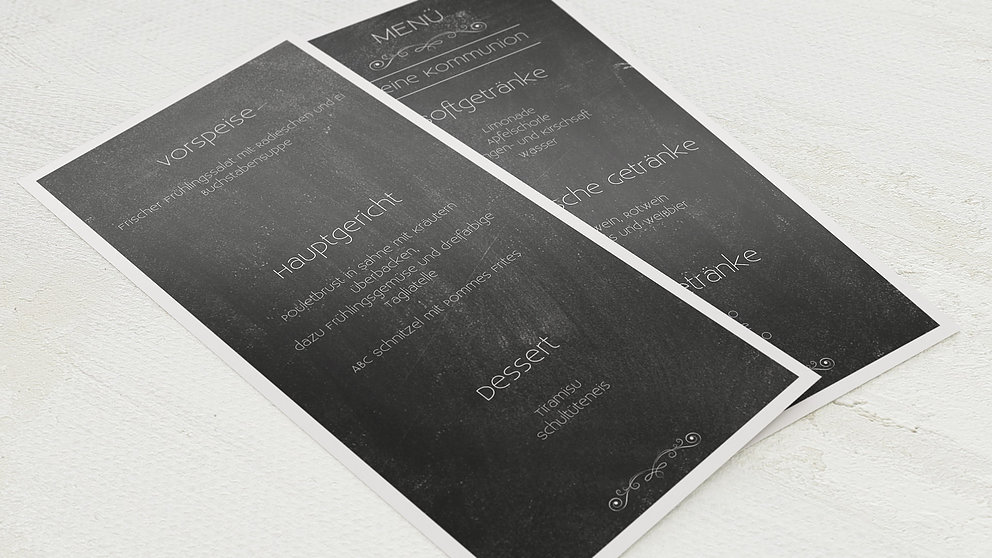 Vorspeise
Frischer Frühlingssalat mit Radieschen und Ei
Buchstabensuppe
Hauptgericht
Pouletbrust in Sahne mit Kräutern
überbacken,
dazu Frühlingsgemüse und dreifarbige
Tagliatelle
ABC Schnitzel mit Pommes Frites
Dessert
Tiramisu
Schultüteneis
MENÜ
eine Kommunion
oftgetränke
Limonade
Apfelschorle
ngen- und Kirschsaft
Wasser
sche Getränke
wein, Rotwein
s und Weißbier
etränke